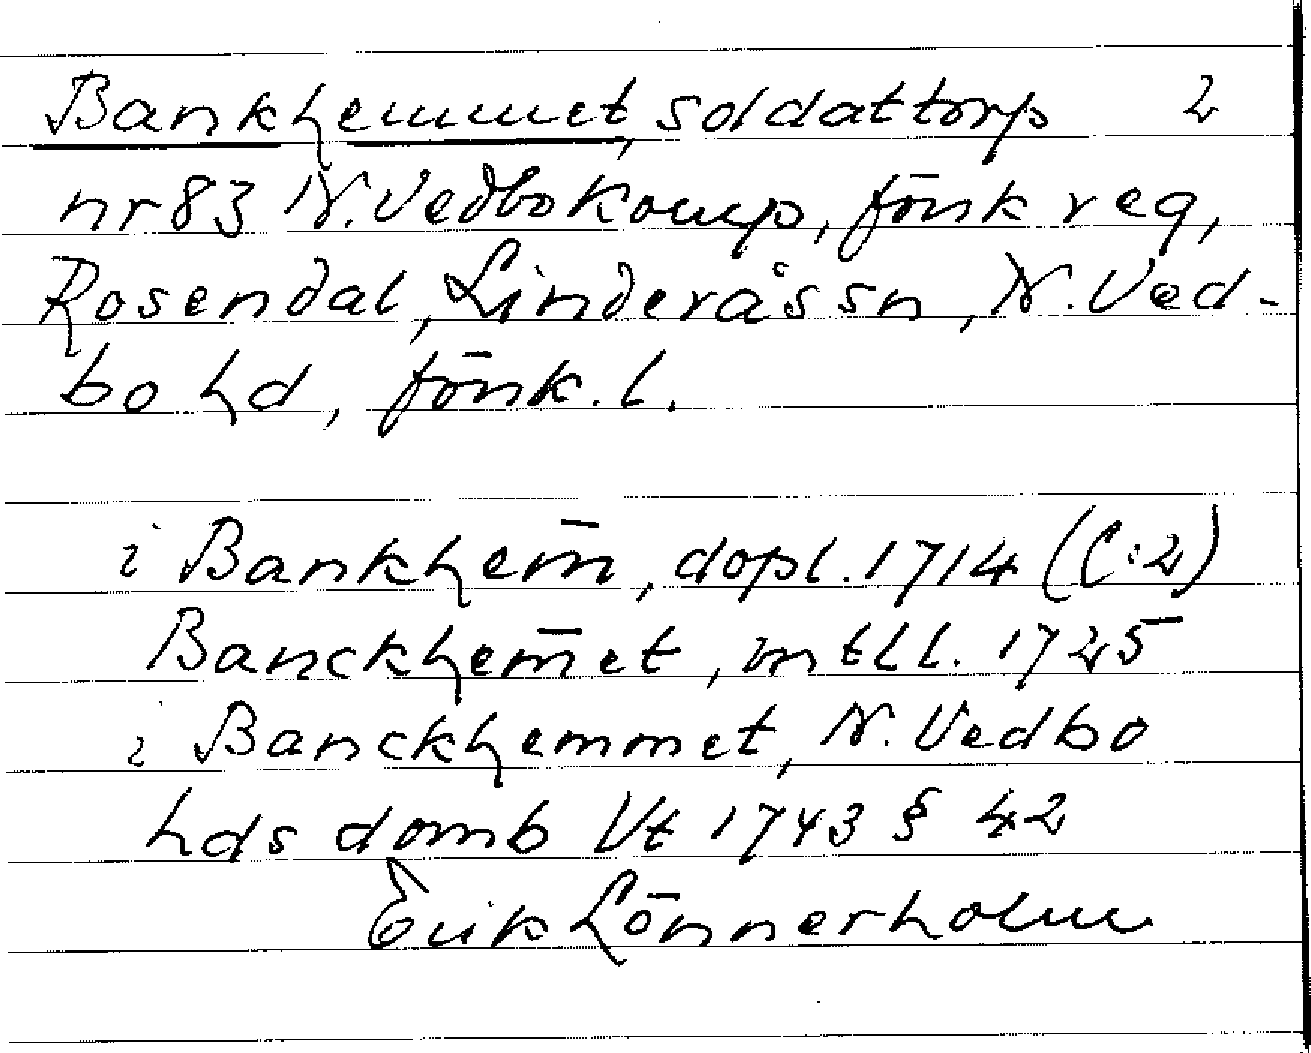 Bankhemmet, soldattorp 2
nr 83 N. Vedbo komp, Jönk reg,
Rosendal, Linderås sn, N. Ved-
bo hd, Jönk. l.
i Bankhem̄, dopl. 1714 (C:2)
Banckhem̄et, mtll. 1725
i Banckhemmet, N. Vedbo
hds domb Vt 1743 § 42
Erik Lönnerholm